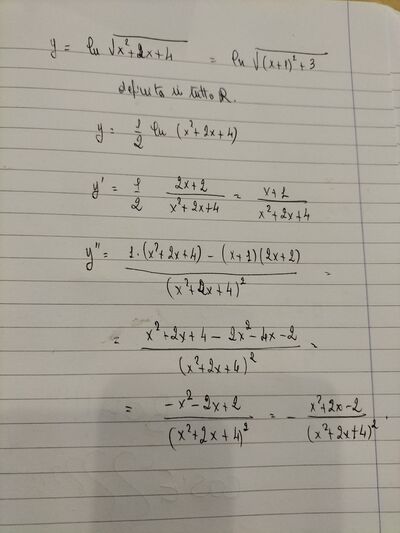 y = ln √(x² + 2x + 4) = ln √((x+1)² + 3)
definita in tutto R.
y = 1/2 ln (x² + 2x + 4)
y' = 1/2 (2x+2)/(x²+2x+4) = (x+1)/(x²+2x+4)
y'' = (1·(x²+2x+4) - (x+1)(2x+2))/(x²+2x+4)² =
= (x²+2x+4 - 2x² - 4x - 2)/(x²+2x+4)² =
= (-x² - 2x + 2)/(x²+2x+4)² = - (x²+2x-2)/(x²+2x+4)².